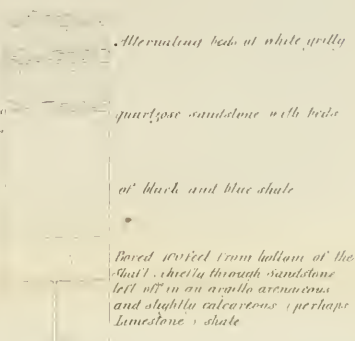 Alternating beds of white gritty
quartzose sandstone with beds
of black and blue shale
Bored feet from bottom of the
shaft, chiefly through sandstone
left off in an argillo arenaceous
and slightly calcareous (perhaps
Limestone) shale